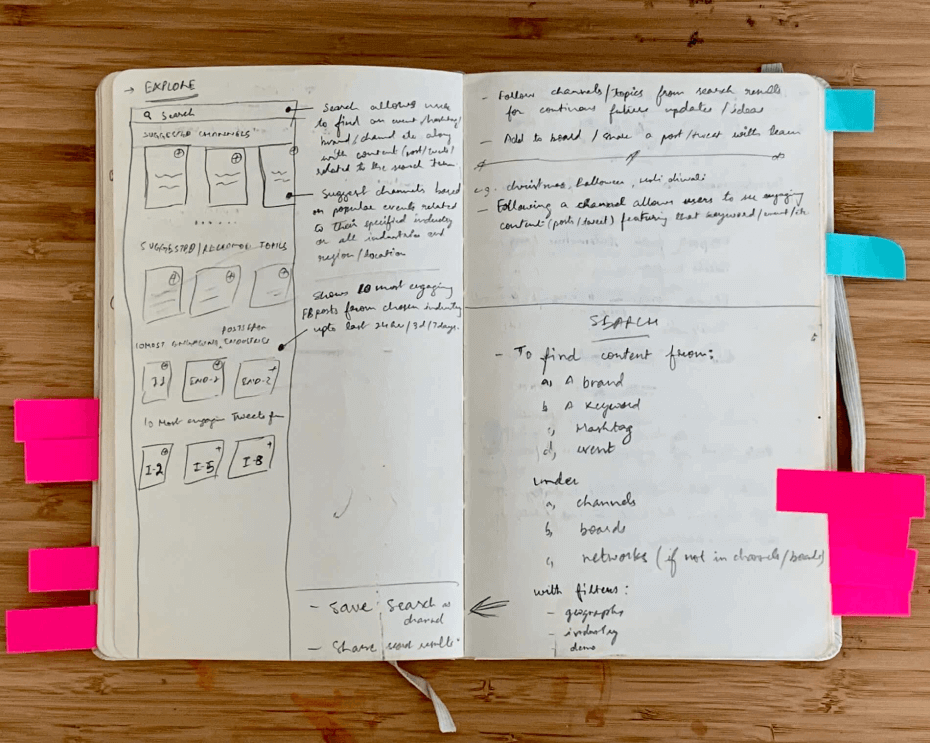 → EXPLORE
Search
SUGGESTED CHANNELS
SUGGESTED / TOPICS
10 MOST ENGAGING
I-2
I-5
I-8
10 Most Tweets
Search allows user
to find an event/hashtag/
brand/channel etc along
with content (post/tweets)
related to the search term
Suggest channels based
on popular events related
to their specified industry
or all industries and
region/location
Shows 10 most engaging
FB posts from chosen industry
upto last 24hr/3d/7days.
- Save Search as
channel
- Share results
- Follow channels/topics from search results
for continous future updates/ideas
- Add to board / Share a post/tweet with team
e.g. christmas, halloween, diwali
- Following a channel allows users to see engaging
content (posts/tweet) featuring that keyword/event/etc.
SEARCH
- To find content from:
a, A brand
b, A Keyword
c, Hashtag
d, event
under
a, channels
b, boards
c, networks (if not in channels/boards)
with filters:
- geography
- industry
- demo